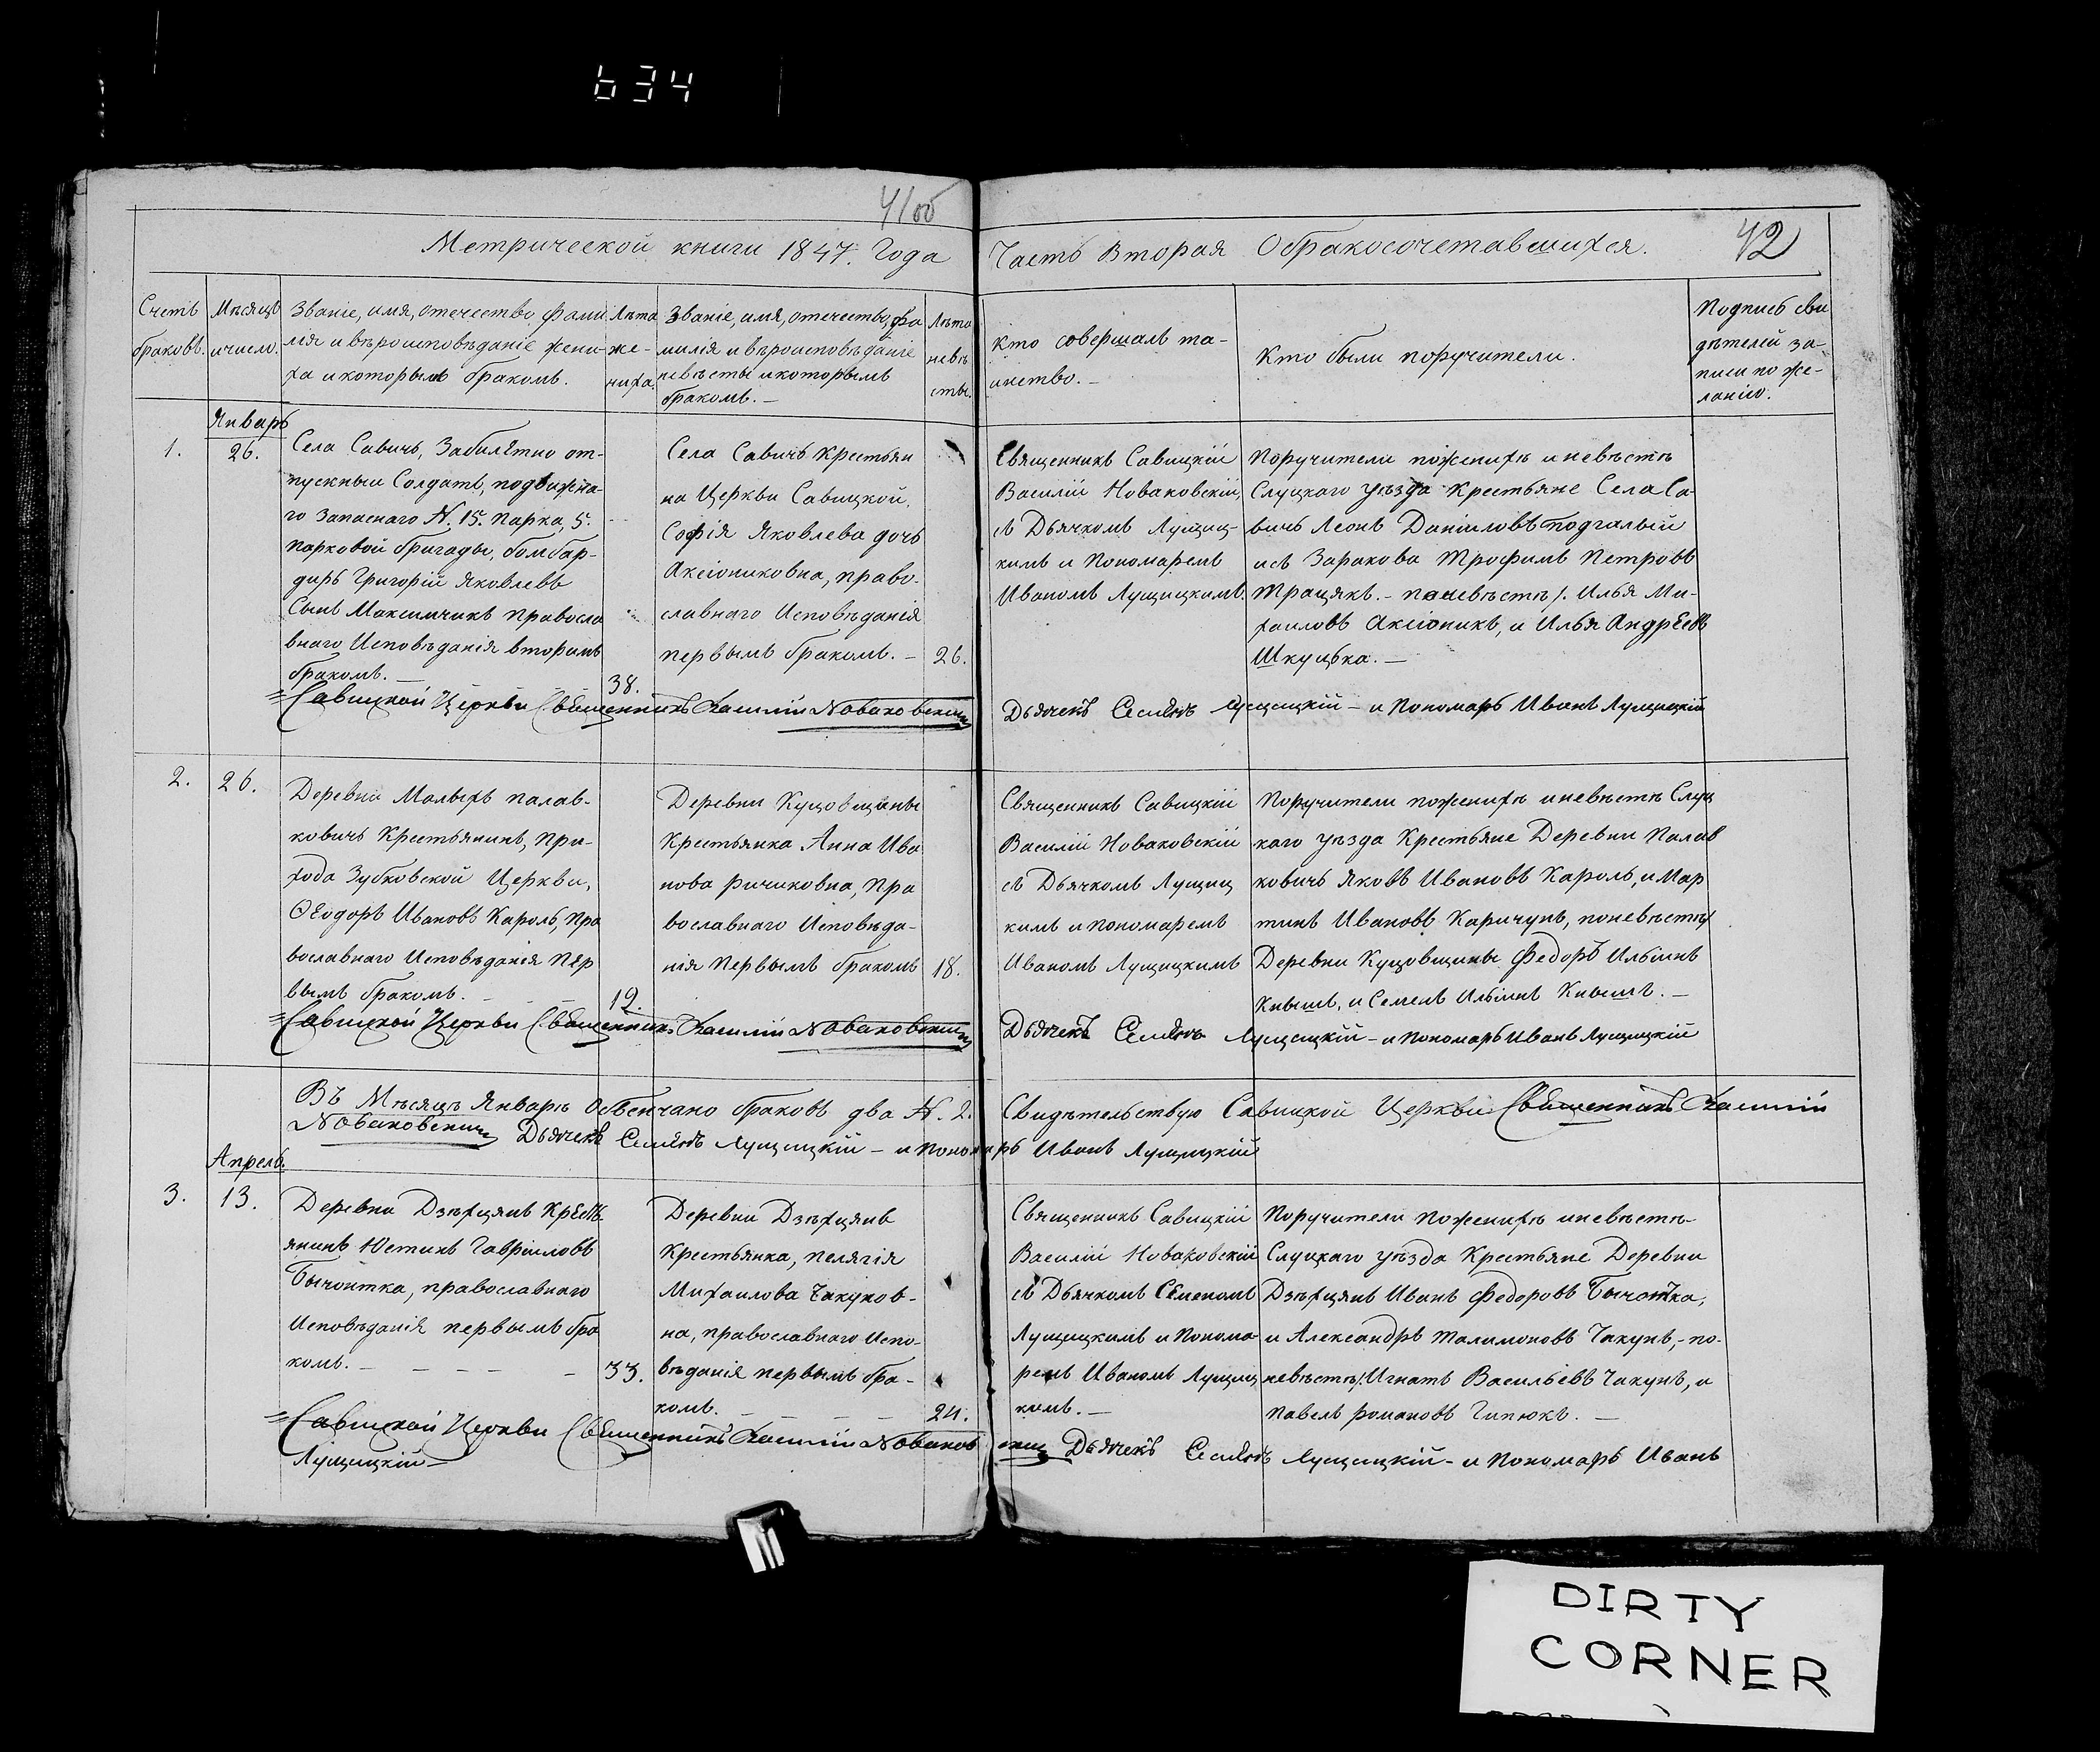 634
41об
42
Метрической книги 1847. Года Часть Вторая Обракосочетавшихся.
Счетъ
браковъ.
Мѣсяцъ
ичисло.
Званіе, имя, отечество, фами
лія и вѣроисповѣданіе жени-
ха и которымъ бракомъ.
Лѣта
же-
ниха.
Званіе, имя, отечество, фа
милія и вѣроисповѣданіе
невѣсты и которымъ
бракомъ.–
Лѣта
невѣ
сты.
Кто совершалъ та-
инство.–
Кто были поручители.
Подпись сви
дѣтелей за-
писи по же-
ланію.
Январь
1.
26.
Села Савичъ, Забилѣтно от-
пускныи Солдатъ, подвижна-
го Запаснаго N. 15. Парка, 5.
парковой бригады, бомбар-
диръ Григорій Яковлевъ
Сынъ Максимчикъ Правосла
внаго Исповѣданія вторымъ
бракомъ.–
38.
Села Савичъ Крестьян
ка Церкви Савицкой,
Софія Яковлева дочь
Аксіониковна, право-
славнаго Исповѣданія
первымъ бракомъ.–
26.
Священникъ Савицкій
Василій Новаковскій,
съ Дьячкомъ Лущиц-
кимъ и Пономаремъ
Иваномъ Лущицкимъ.
Поручители поженихѣ иневѣстѣ
Слуцкаго уѣзда Крестьяне Села Са-
вичъ Леонъ Даніиловъ Подгалый
исъ Заракова Трофимъ Петровъ
Трацякъ.– поневѣстѣ /. Илья Ми-
хаиловъ Аксіоникъ, и Илья Андреевъ
Шкуцбка.–
=Савицкой Церкви Священникъ Василій Новаковскій Дьячекъ Семенъ Лущицкій – и Пономарь Иванъ Лущицкій
2.
26.
Деревни Малыхъ Палав-
ковичъ Крестьянинъ, При-
хода Зубковской Церкви,
Ѳеодоръ Ивановъ Кароль, Пра
вославнаго Исповѣданія Пер
вымъ бракомъ.–
19.
Деревни Куцовщины
Крестьянка Анна Ива
нова Ричиковна, Пра
вославнаго Исповѣда-
нія Первымъ бракомъ
18.
Священникъ Савицкій
Василій Новаковскій
съ Дьячкомъ Лущиц
кимъ и Пономаремъ
Иваномъ Лущицкимъ
Поручители поженихѣ иневѣстѣ Слуц
каго уѣзда Крестьяне Деревни Палав
ковичъ Яковъ Ивановъ Кароль, и Мар
тинъ Ивановъ Каричунъ, поневѣстѣ/
Деревни Куцовщины Федоръ Ильинъ
Кнышъ, и Семенъ Ильинъ Кнышъ.–
=Савицкой Церкви Священникъ Василій Новаковскій Дьячекъ Семенъ Лущицкій – и Пономарь Иванъ Лущицкій
Въ Мѣсяцъ Январѣ Обвенчано браковъ два N. 2. Свидѣтельствую Савицкой Церкви Священникъ Василій
Новаковскій Дьячекъ Семенъ Лущицкій – и Пономарь Иванъ Лущицкій
Апрель.
3.
13.
Деревни Дзѣхцянъ Кресть
янинъ Юстинъ Гавріиловъ
Бычонтка, православнаго
Исповѣданія первымъ бра
комъ.–
33.
Деревни Дзѣхцянъ
Крестьянка, Пелягія
Михаилова Чакунов-
на, православнаго Испо-
вѣданія первымъ бра-
комъ.–
24.
Священникъ Савицкій
Василій Новаковскій
съ Дьячкомъ Семеномъ
Лущицкимъ и Понома-
ремъ Иваномъ Лущиц
кимъ.–
Поручители поженихѣ иневѣстѣ–
Слуцкаго уѣзда Крестьяне Деревни
Дзѣхцянъ Иванъ Федоровъ Бычотка,
и Александръ Талимоновъ Чакунъ,– по-
невѣстѣ/. Игнатъ Васильевъ Чакунъ, и
Павелъ Романовъ Гипюкъ.–
=Савицкой Церкви Священникъ Василій Новаковскій Дьячекъ Семенъ Лущицкій – и Пономарь Иванъ
Лущицкій–
DIRTY
CORNER